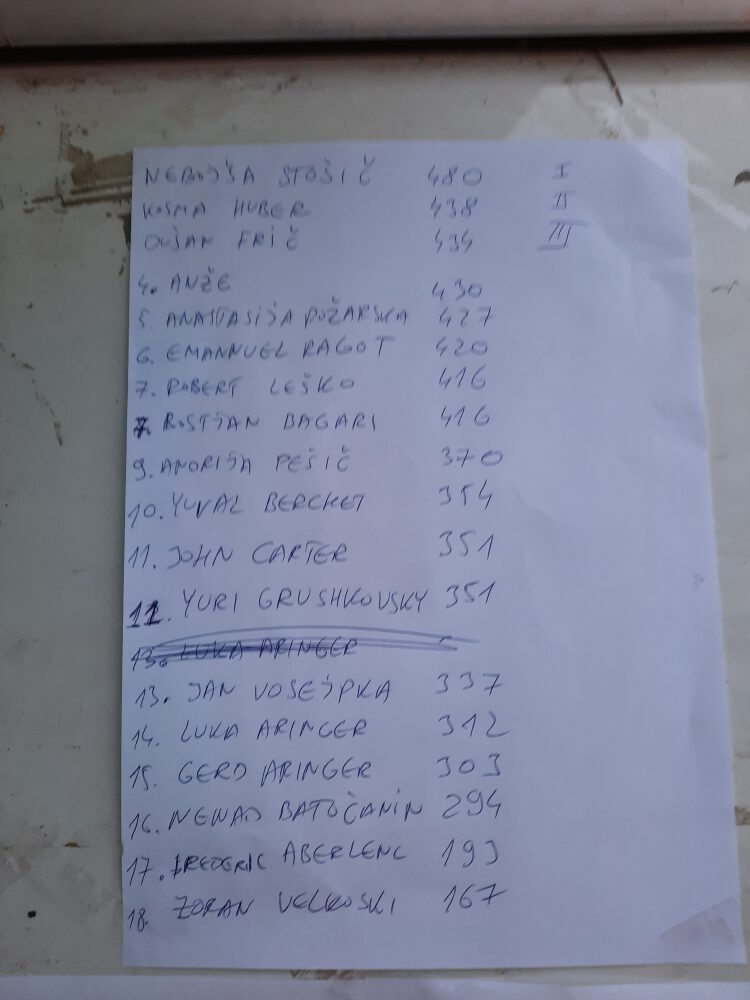 NEBOJŠA STOŠIČ 480 I
KOSMA HUBER 438 II
DUŠAN FRIČ 434 III
4. ANŽE 430
5. ANASTASIJA POŽARSKA 427
6. EMANNUEL RAGOT 420
7. ROBERT LEŠKO 416
7. BOSTJAN BAGARI 416
9. ANDRIJA PEŠIČ 370
10. YUVAL BERCHET 354
11. JOHN CARTER 351
11. YURI GRUSHKOVSKY 351
13. LUKA ARINGER
13. JAN VOSEŠPKA 337
14. LUKA ARINGER 312
15. GERD ARINGER 303
16. NENAD BATOČANIN 294
17. FREDERIC ABERLENC 193
18. ZORAN VELKOSKI 167